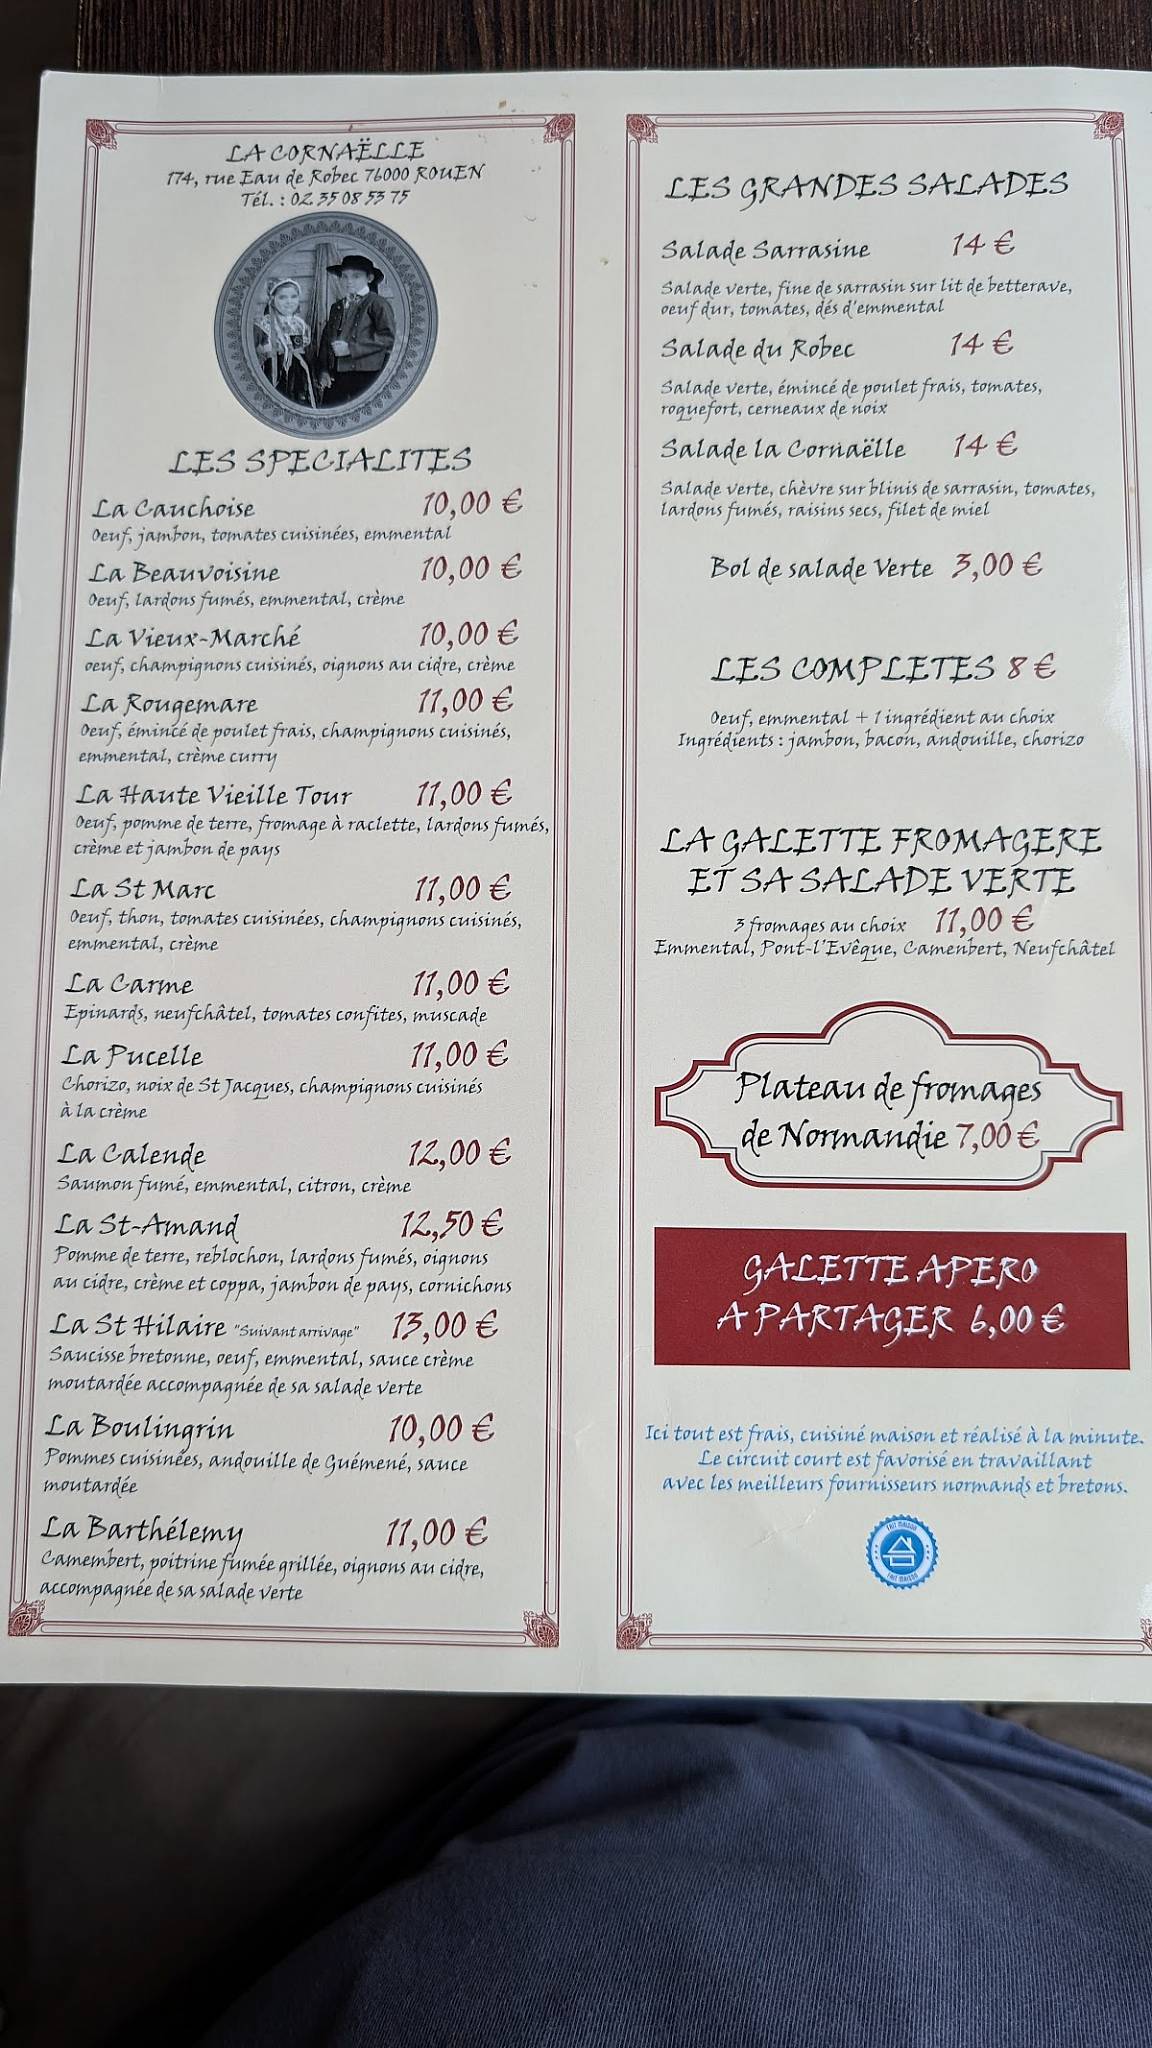 LA CORNAËLLE
174, rue Eau de Robec 76000 ROUEN
Tél. : 02 35 08 53 75
LES SPECIALITES
La Cauchoise 10,00 €
Oeuf, jambon, tomates cuisinées, emmental
La Beauvoisine 10,00 €
Oeuf, lardons fumés, emmental, crème
La Vieux-Marché 10,00 €
oeuf, champignons cuisinés, oignons au cidre, crème
La Rougemare 11,00 €
Oeuf, émincé de poulet frais, champignons cuisinés,
emmental, crème curry
La Haute Vieille Tour 11,00 €
Oeuf, pomme de terre, fromage à raclette, lardons fumés,
crème et jambon de pays
La St Marc 11,00 €
Oeuf, thon, tomates cuisinées, champignons cuisinés,
emmental, crème
La Carme 11,00 €
Epinards, neufchâtel, tomates confites, muscade
La Pucelle 11,00 €
Chorizo, noix de St Jacques, champignons cuisinés
à la crème
La Calende 12,00 €
Saumon fumé, emmental, citron, crème
La St-Amand 12,50 €
Pomme de terre, reblochon, lardons fumés, oignons
au cidre, crème et coppa, jambon de pays, cornichons
La St Hilaire "Suivant arrivage" 13,00 €
Saucisse bretonne, oeuf, emmental, sauce crème
moutardée accompagnée de sa salade verte
La Boulingrin 10,00 €
Pommes cuisinées, andouille de Guémené, sauce
moutardée
La Barthélemy 11,00 €
Camembert, poitrine fumée grillée, oignons au cidre,
accompagnée de sa salade verte
LES GRANDES SALADES
Salade Sarrasine 14 €
Salade verte, fine de sarrasin sur lit de betterave,
oeuf dur, tomates, dés d'emmental
Salade du Robec 14 €
Salade verte, émincé de poulet frais, tomates,
roquefort, cerneaux de noix
Salade la Cornaëlle 14 €
Salade verte, chèvre sur blinis de sarrasin, tomates,
lardons fumés, raisins secs, filet de miel
Bol de salade Verte 3,00 €
LES COMPLETES 8 €
Oeuf, emmental + 1 ingrédient au choix
Ingrédients : jambon, bacon, andouille, chorizo
LA GALETTE FROMAGERE
ET SA SALADE VERTE
3 fromages au choix 11,00 €
Emmental, Pont-l'Evêque, Camenbert, Neufchâtel
Plateau de fromages
de Normandie 7,00 €
GALETTE APERO
A PARTAGER 6,00 €
Ici tout est frais, cuisiné maison et réalisé à la minute.
Le circuit court est favorisé en travaillant
avec les meilleurs fournisseurs normands et bretons.
FAIT MAISON
FAIT MAISON